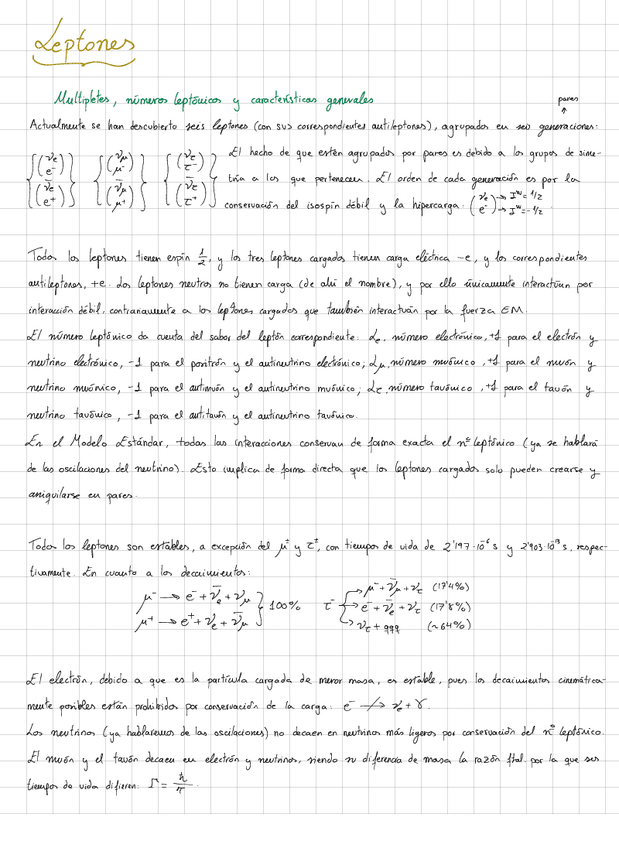 Leptones
Multipletes, números leptónicos y características generales
pares
↑
Actualmente se han descubierto seis leptones (con sus correspondientes antileptones), agrupados en seis generaciones:
{(νe e⁻) (ν̄e e⁺)} {(νμ μ⁻) (ν̄μ μ⁺)} {(ντ τ⁻) (ν̄τ τ⁺)} El hecho de que estén agrupados por pares es debido a los grupos de sime-
tría a los que pertenecen. El orden de cada generación es por la
conservación del isospín débil y la hipercarga: (νe e⁻) → Iʷ = 1/2 → Iʷ = -1/2
Todos los leptones tienen espín 1/2, y los tres leptones cargados tienen carga eléctrica -e, y los correspondientes
antileptones, +e. Los leptones neutros no tienen carga (de ahí el nombre), y por ello únicamente interactúan por
interacción débil, contrariamente a los leptones cargados que también interactúan por la fuerza EM.
El número leptónico da cuenta del sabor del leptón correspondiente: Le, número electrónico, +1 para el electrón y
neutrino electrónico, -1 para el positrón y el antineutrino electrónico; Lμ, número muónico, +1 para el muón y
neutrino muónico, -1 para el antimuón y el antineutrino muónico; Lτ, número tauónico, +1 para el tauón y
neutrino tauónico, -1 para el antitauón y el antineutrino tauónico.
En el Modelo Estándar, todas las interacciones conservan de forma exacta el nº leptónico (ya se hablará
de las oscilaciones del neutrino). Esto implica de forma directa que los leptones cargados solo pueden crearse y
aniquilarse en pares.
Todos los leptones son estables, a excepción del μ± y τ±, con tiempos de vida de 2'197·10⁻⁶ s y 2'903·10⁻¹³ s, respec-
tivamente. En cuanto a los decaimientos:
μ⁻ → e⁻ + ν̄e + νμ
μ⁺ → e⁺ + νe + ν̄μ } 100%
τ⁻ → μ⁻ + ν̄μ + ντ (17'4%)
→ e⁻ + ν̄e + ντ (17'8%)
→ ντ + qqq (~64%)
El electrón, debido a que es la partícula cargada de menor masa, es estable, pues los decaimientos cinemática-
mente posibles están prohibidos por conservación de la carga: e⁻ ↛ νe + γ.
Los neutrinos (ya hablaremos de las oscilaciones) no decaen en neutrinos más ligeros por conservación del nº leptónico.
El muón y el tauón decaen en electrón y neutrinos, siendo su diferencia de masa la razón ftal. por la que sus
tiempos de vida difieren: Γ = ħ/τ.